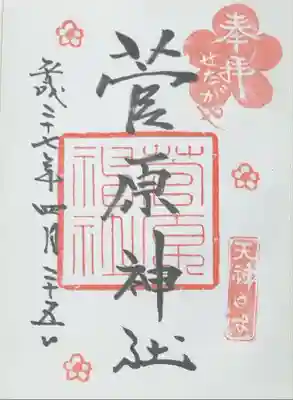 奉拝
せたがや
菅原神社
菅原
神社
平成二十七年四月二十五日